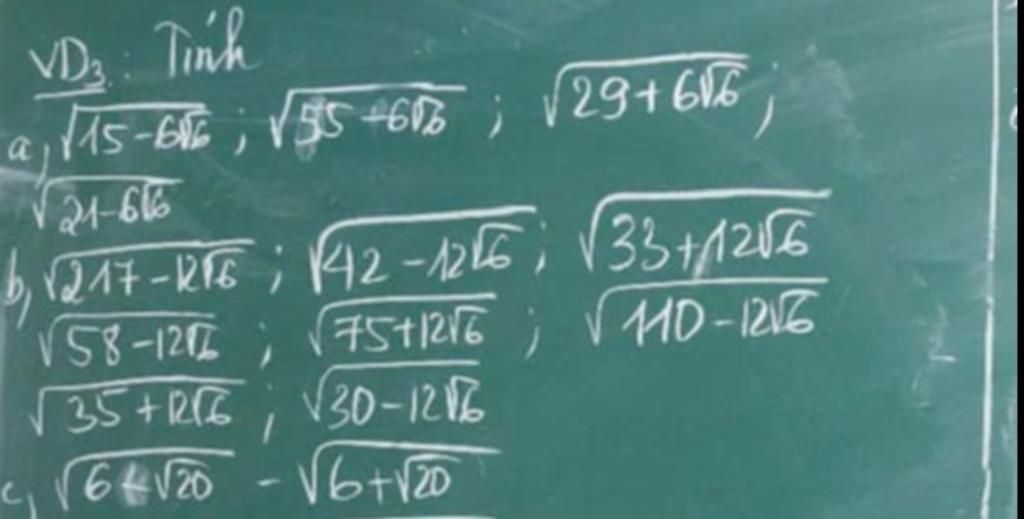 VD₃: Tính
a, √(15-6√6) ; √(55-6√6) ; √(29+6√6) ;
√(21-6√6)
b, √(217-12√6) ; √(42-12√6) ; √(33+12√6)
√(58-12√6) ; √(75+12√6) ; √(110-12√6)
√(35+12√6) ; √(30-12√6)
c, √(6-√20) - √(6+√20)